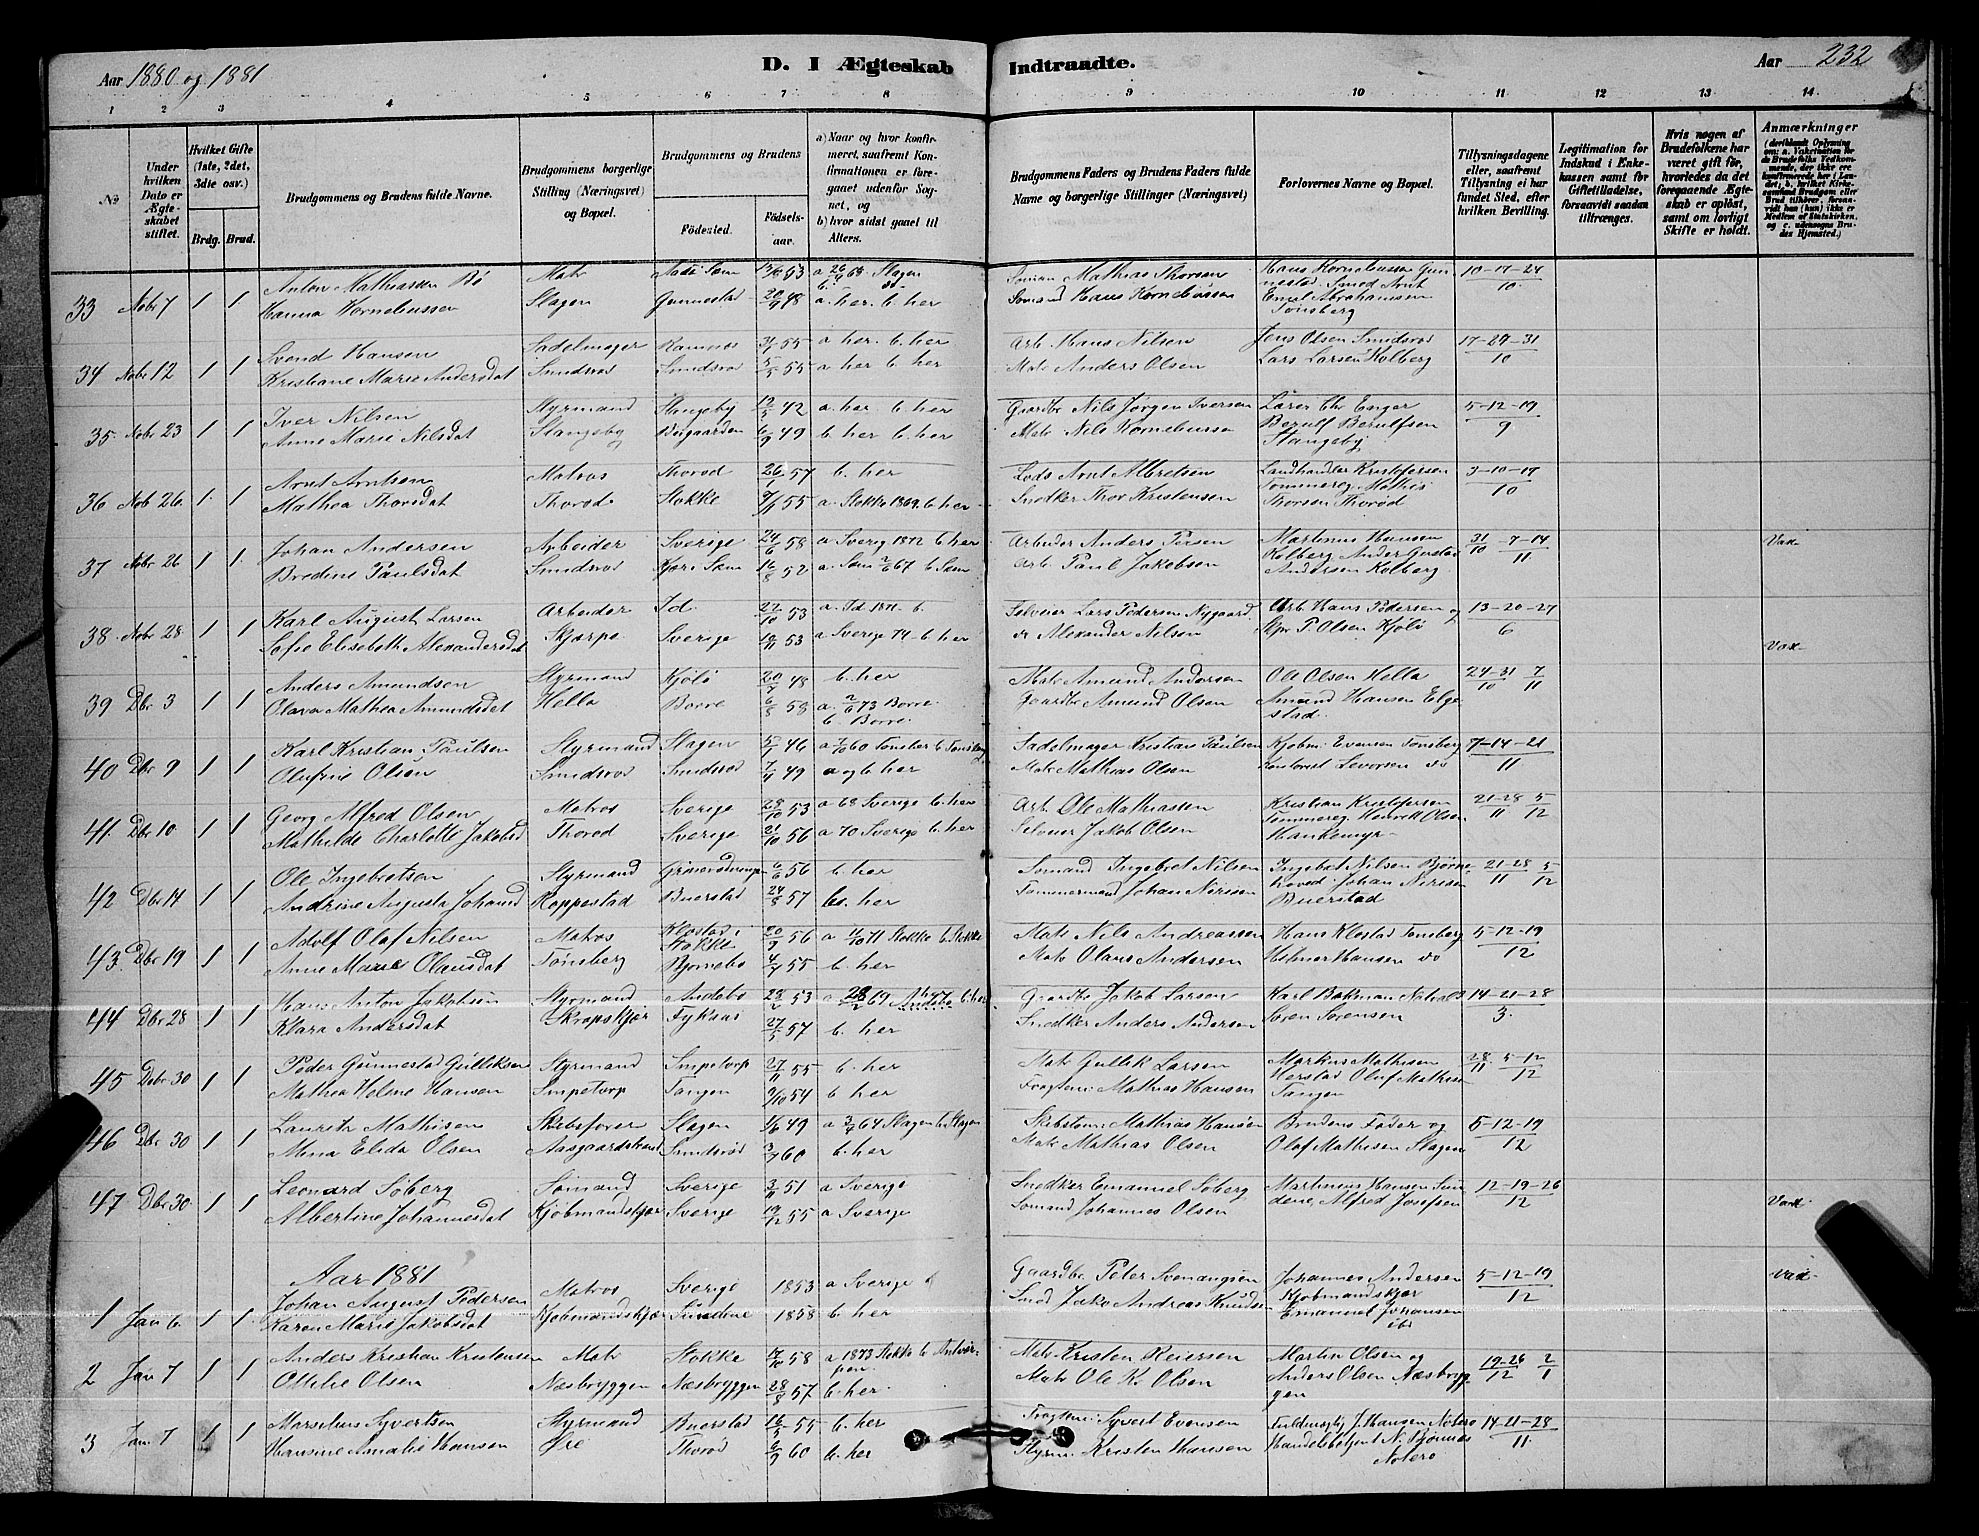 Aar 1880 og 1881
D. I Ægteskab Indtraadte.
Aar 232
1 2 3 4 5 6 7 8 9 10 11 12 13 14.
No
Under hvilken Dato er Ægteskabet stiftet.
Hvilket Gifte (1ste, 2det, 3die osv.)
Brdg. Brud.
Brudgommens og Brudens fulde Navne.
Brudgommens borgerlige Stilling (Næringsvei) og Bopæl.
Brudgommens og Brudens
Födested. Födselsaar.
a) Naar og hvor konfirmeret, saafremt Konfirmationen er foregaaet udenfor Sognet, og
b) hvor sidst gaaet til Alters.
Brudgommens Faders og Brudens Faders fulde Navne og borgerlige Stillinger (Næringsvei)
Forlovernes Navne og Bopæl.
Tillysningsdagene eller, saafremt Tillysning ei har fundet Sted, efter hvilken Bevilling.
Legitimation for Indskud i Enkekassen samt for Giftetilladelse, forsaavidt saadan tiltrænges.
Hvis nogen af Brudefolkene har været gift før, hvorledes da det foregaaende Ægteskab er opløst, samt om lovligt Skifte er holdt.
Anmærkninger
33 Nobr 7 1 1 Anton Mathiassen Bö Matr 53 Slagen Mathias Thorsen Hans Kornebussen Gun- 10-17-24
Hanna Kornebussen Slagen Gunnestad 20/9 48 a. her. b. her Sømand Hans Kornebussen nestad. Smed Arnt 10
Emil Abrahamsen
Tonsberg
34 Nobr 12 1 1 Svend Hansen Sadelmager Ramnes 55 a her. b. her Arb. Hans Nilsen Jens Olsen Smidsrod 17-24-31
Kristiane Marie Andersdat Smidsrod Smidsrod 5/5 55 a her b. her Matr Anders Olsen Lars Larsen Kolberg 10
35 Nobr 23 1 1 Iver Nilsen Styrmand Stangeby 12/5 42 a. her b her Gaardbr Nils Jorgen Iversen Lærer Chr Enger 5-12-19
Anne Marie Nilsdat Stangeby Buigaarden 6/9 49 b. her b. her Matr Nils Kornebussen Berulf Berulfsen 9
Stangeby
36 Nob 26 1 1 Arnt Arntsen Matros Thorod 26/1 57 b. her Lods Arnt Albretsen Landhandler Kristofersen 3-10-17
Mathea Thorsdat Thorod Stokke 55 a. Stokke 1869. b. her Snedker Thor Kristensen Tommereg. Mathis 10
Thorsen Thorød
37 Nobr 26 1 1 Johan Andersen Arbeider Sverige 24/6 58 a Sverig 1872 b. her Arbeider Anders Martinus Hansen 31/10 -7-14/11 Vax
Bredine Paulsdat Smidsrod Kjær. Sem 16/8 52 a. Sem 67 b Sem Arb. Paul Jakobsen Kolberg Ander Gustav
Andersen Kolberg.
38 Nobr 28 1 1 Karl August Larsen Arbeider Id 22/10 53 a. Id 1871. b. Selveier Lars Pedersen Nygaard Arb. Hans Pedersen og 13-20-27
Sofie Elisabeth Alexandersdat Skjærpe Sverige 19/11 53 a Sverige 74 - b her Alexander Nilsen Skpr P. Olsen Kjölö 6 Vax
39 Dbr 3 1 1 Anders Amundsen Styrmand Kjölö 20/7 48 b. her Matr Amund Andersen Ole Olsen Hella 24-31/10 7/11
Olava Mathea Amundsdat Hella Borre 6/8 58 a 73 Borre Gaardbr Amund Olsen Amund Hansen Elge-
b. Borre stad.
40 Dbr 9 1 1 Karl Kristian Paulsen Styrmand Slagen 5/1 46 a 60 Tonsber b Tonsberg Sadelmager Kristian Paulsen Kjobm. Evensen Tonsberg 7-14-21
Olufine Olsen Smidsrod Smidsrod 7/11 49 a og b her Matr Mathias Olsen Kontorist Levorsen do 11
41. Dbr 10 1 1 Georg Alfred Olsen Matros Sverige 28/10 53 a 68 Sverige b. her Arb. Ole Mathiassen Kristian Kristofersen 21-28/11 5/12
Mathilde Charlotte Jakobsd Thorod Sverige 21/10 56 a 70 Sverige b. her Selveier Jakob Olsen Tommereg Henrik Olsen
Hankemyr-
42 Dbr 14 1 1 Ole Ingebretsen Styrmand 6/6 56 b. her Sømand Ingebret Nilsen Ingebret Nilsen Bjørne- 21-28/11 5/12
Andrine Augusta Johansd Roppestad Buerstad 24/8 57 b. her Tømmermand Johan Nirisen hoved Johan Nirisen
Buerstad
43. Dbr 19 1 1 Adolf Olaf Nilsen Matros Klostad i Stokke 20/9 56 a 11/10 71 Stokke b. Stokke Matr Nils Andreassen Hans Klestad Tonsberg 5-12-19
Anne Marie Olausdat Tönsberg Bjornebo 4/7 55 b. her Matr Olaus Andersen Helmer Hansen do 12
44 Dbr 28 1 1 Hans Anton Jakobsen Styrmand Andebo 28/2 53 a 69 Andebo b. her Gaardbr Jakob Larsen Karl Bokman 14-21-28
Klara Andersdat 27/5 57 b. her Snedker Anders Andersen Soren Sorensen 3.
45 Dbr 30 1 1 Peder Gunnestad Gulliksen Styrmand Impetorp 27/11 55 b. her Matr Gullik Larsen Markus Mathisen 28/11 5-12/12
Mathea Helene Hansen Impetorp Tangen 54 b her Mathias Hansen Herstad Oluf Mathisen
Tangen
46 Dbr 30 1 1 Lauritz Mathisen Skibsforer Slagen 49 a 64 Slagen b. Slagen Skibstom: Mathias Hansen Brudens Fader og 5-12-19
Mina Elida Olsen Aasgaardstrand Smidsrod 3/7 60 b. her Matr Mathias Olsen Olaf Mathisen Slagen 12
47 Dbr 30 1 1 Leonard Söberg Sömand Sverige 3/11 51 a Sverige Snedker Emanuel Söberg Martinus Hansen Sun- 12-19-26
Albertine Johannesdat Kjöbmandskjær Sverige 19/12 55 a Sverige Sømand Johannes Olsen dene, Alfred Josefsen 12 Vax
Aar 1881
1 Jan 6. 1 1 Johan August Pedersen Matros Sverige 1853 a Sverige Gaardbr Peter Svenangsen Johannes Andersen 5-12-19 Vax
Karen Marie Jakobsdat Kjobmandskjær Sundene 1858 b. her Smed Jakob Andreas Knudsen Kjobmandskjær 12
Emanuel Johansen
ibd
2 Jan 7 1 1 Anders Kristian Kristensen Matr Stokke 17/10 58 a 1873 Stokke b Antver- Matr Kristen Reiersen Martin Olsen og 19-26/12 2/1
Ottilie Olsen Næsbryggen Næsbryggen 28/8 57 b. her. Matr Ole K. Olsen Anders Olsen Næsbryg-
gen
3 Jan 7 1 1 Marselius Syvertsen Styrmand Buerstad 16/5 55 b. her Syvert Evensen Fuldmægtig J. Hansen Nøtero 14-21-28
Hansine Amalie Hansen Øre Thorød 6/9 60 b. her Styrm. Kristen Hansen Handelsbetjent N. Bjønnes 11
Nøtero